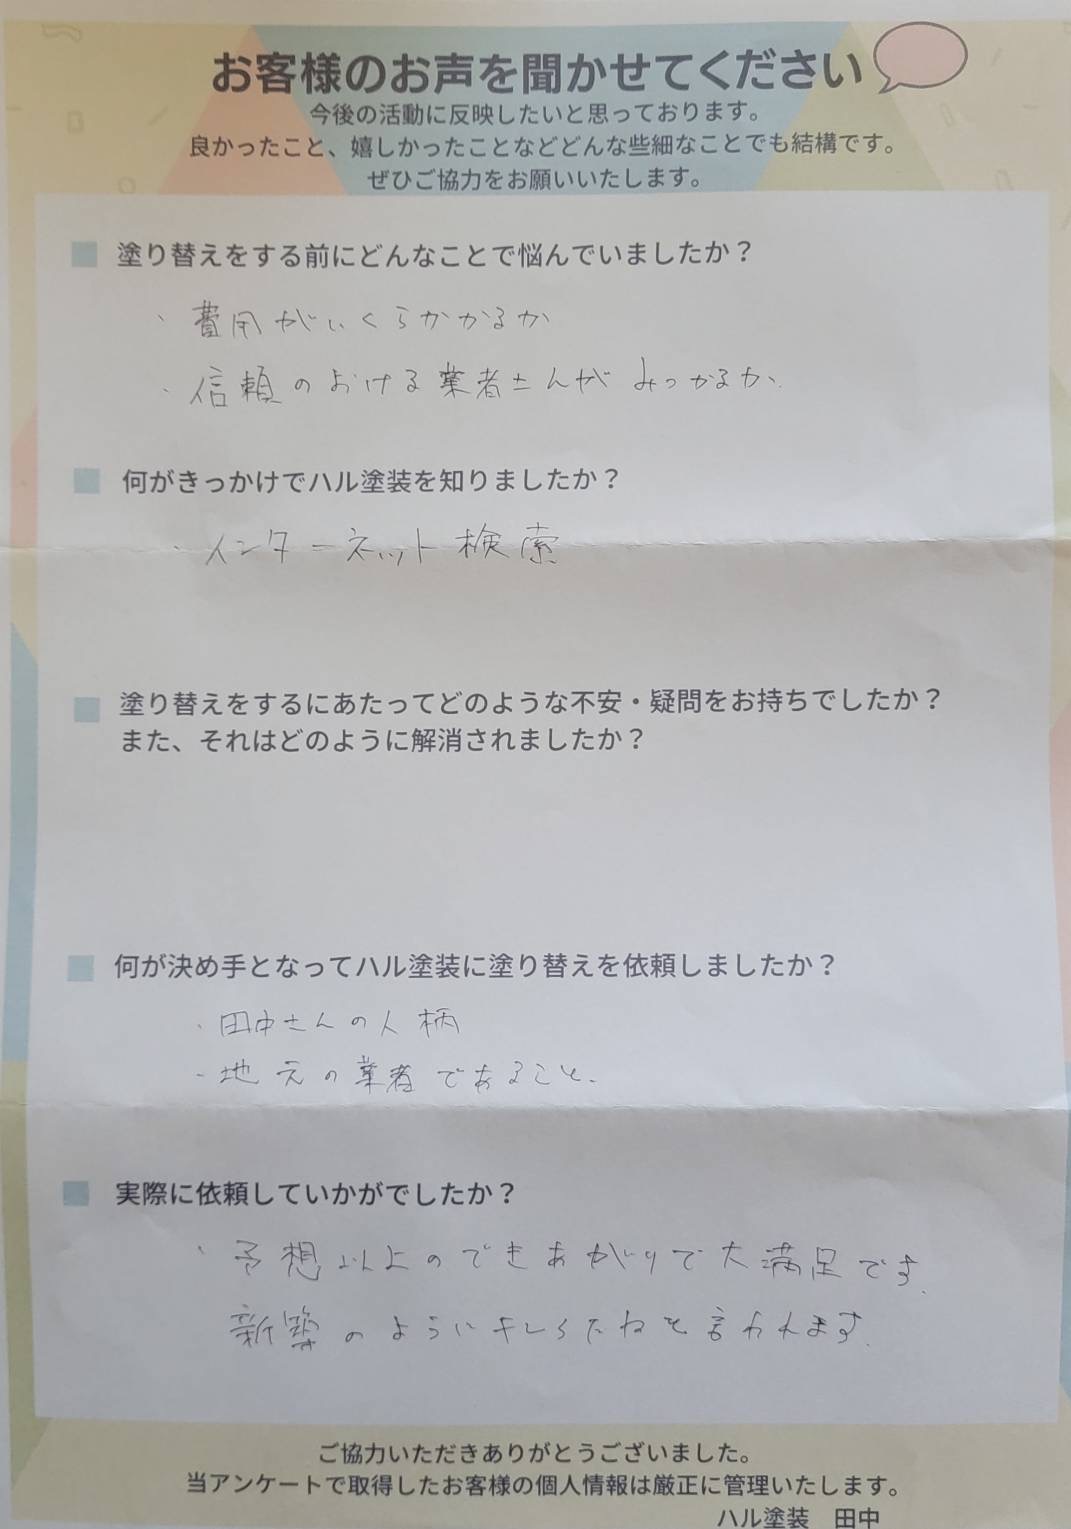 お客様のお声を聞かせてください
今後の活動に反映したいと思っております。
良かったこと、嬉しかったことなどどんな些細なことでも結構です。
ぜひご協力をお願いいたします。
塗り替えをする前にどんなことで悩んでいましたか？
・費用がいくらかかるか
・信頼のおける業者さんがみつかるか.
何がきっかけでハル塗装を知りましたか？
・インターネット検索
塗り替えをするにあたってどのような不安・疑問をお持ちでしたか？
また、それはどのように解消されましたか？
何が決め手となってハル塗装に塗り替えを依頼しましたか？
・田中さんの人柄
・地元の業者であること.
実際に依頼していかがでしたか？
・予想以上のできあがりで大満足です.
新築のようにキレイだねと言われます.
ご協力いただきありがとうございました。
当アンケートで取得したお客様の個人情報は厳正に管理いたします。
ハル塗装　田中